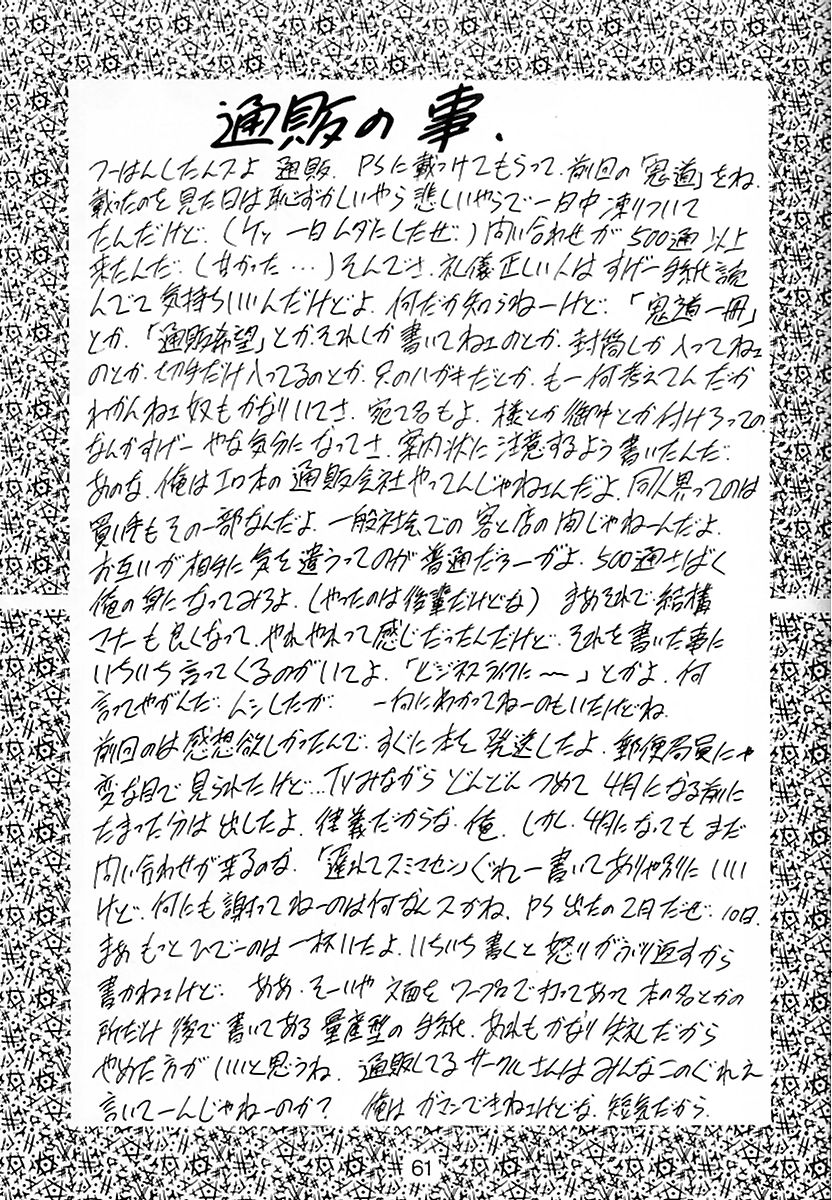 通販の事.
つーはんしたんスよ 通販. PSに載っけてもらって. 前回の「鬼道」をね.
載ったのを見た日は恥ずかしいやら悲しいやらで一日中凍りついて
たんだけど. (ケッ 一日ムダにしたぜ.) 問い合わせが 500通以上
来たんだ. (甘かった …) そんでさ. 礼儀正しい人は すげー手紙読
んでて気持ちいいんだけどよ. 何だか知らねーけど. 「鬼道一冊」
とか. 「通販希望」とかそれしか書いてねェのとか. 封筒しか入ってねェ
のとか. 切手だけ入ってるのとか. 只のハガキだとか. もー何考えてんだか
わかんねェ奴もかなりいてさ. 宛て名もよ. 様とか御中とか付けろっての.
なんかすげー やな気分になってさ. 案内状に注意するよう書いたんだ.
あのな. 俺はエロ本の通販会社やってんじゃねェんだよ. 同人界ってのは
買い手もその一部なんだよ. 一般社会での客と店の間じゃねーんだよ.
お互いが相手に気を遣うってのが普通だろーがよ. 500通さばく
俺の身になってみろよ. (やったのは後輩だけどな) まあそれで結構
マナーも良くなって. やれやれって感じだったんだけど. それを書いた事に
いちいち言ってくるのがいてよ. 「ビジネスライクに〜」とかよ. 何
言ってやがんだ. ムシしたが. 一向にわかってねーのもいたけどね.
前回のは感想欲しかったんで. すぐに本を発送したよ. 郵便局員にゃ
変な目で見られたけど… TVみながら どんどん つめて 4月になる前に
たまった分は出したよ. 律義だからな. 俺. しかし. 4月になっても まだ
問い合わせが来るのな. 「遅れてスミマセン」ぐれー書いてありゃ別にいい
けど. 何にも謝ってねーのは何なんスかね. PS出たの2月だぜ. 10日.
まあ もっとひでーのは一杯いたよ. いちいち書くと怒りがぶり返すから
書かねェけど. ああ. そーいや 文面を ワープロで打ってあって 本の名とかの
所だけ 後で書いてある 量産型の手紙. あれもかなり 失礼だから
やめた方が いいと思うね. 通販してるサークルさんは みんなこのぐれえ
言いてーんじゃねーのか? 俺は ガマンできねェけどな. 短気だから.
61